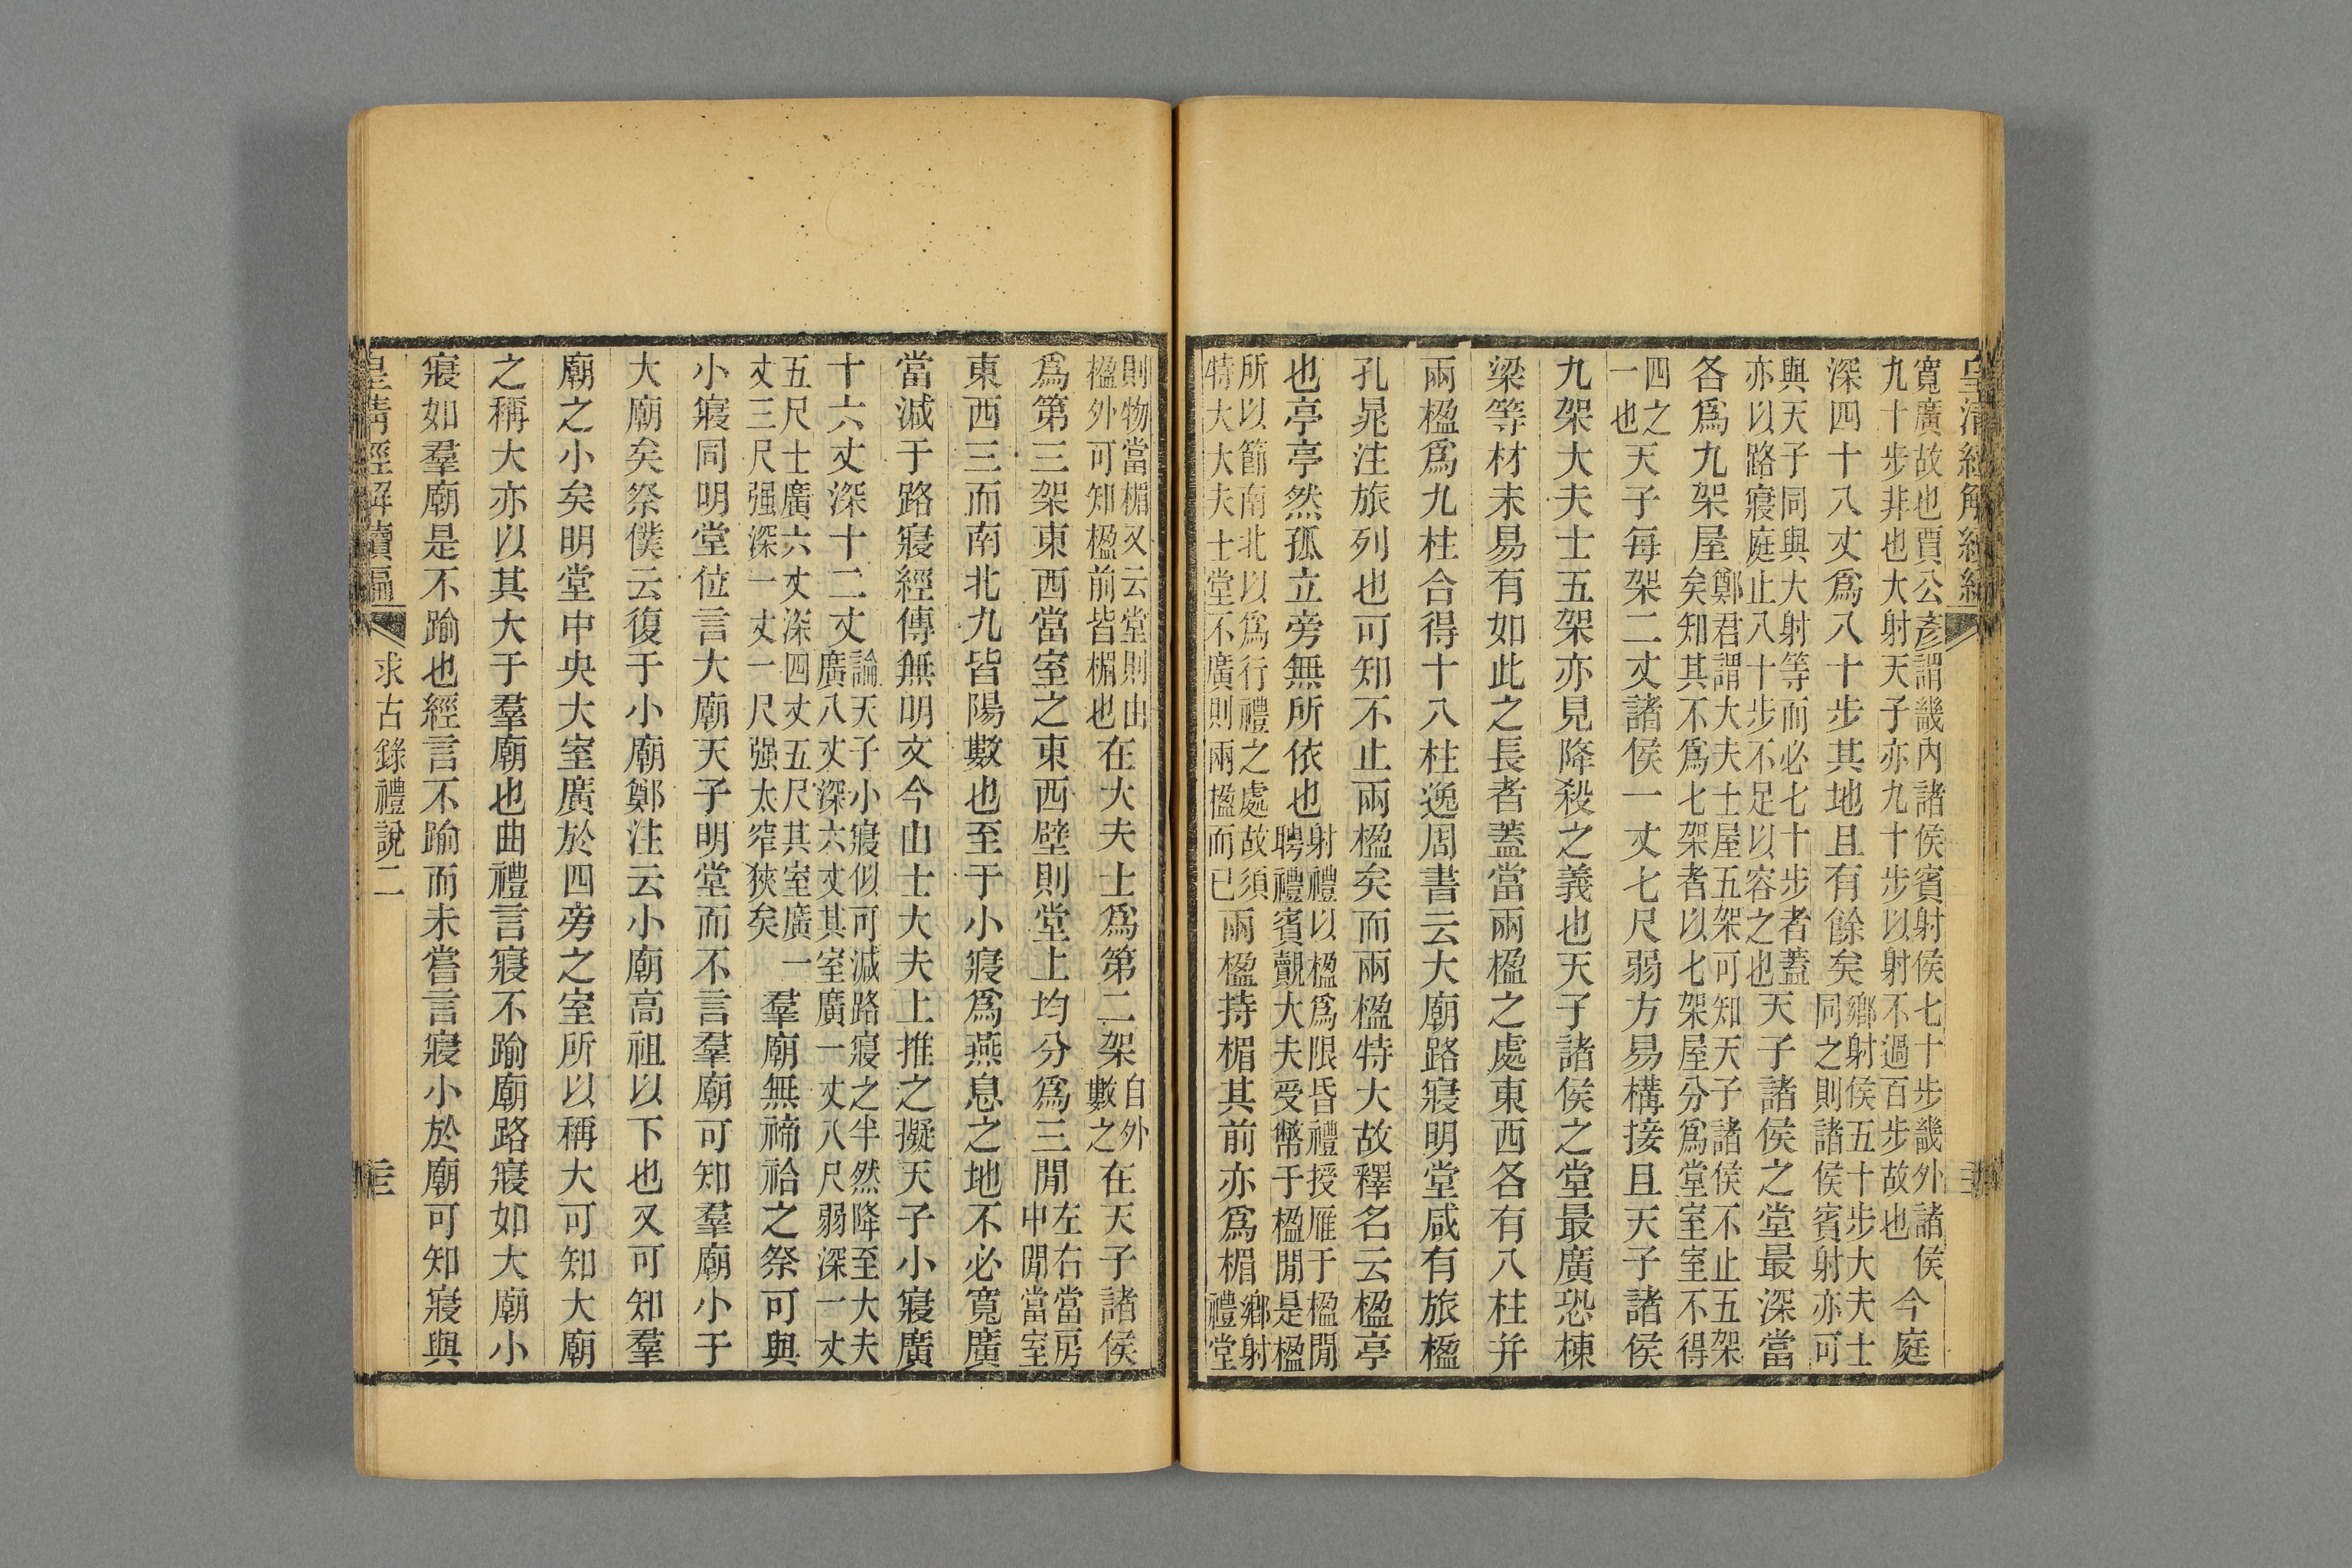 寬廣故也賈公彥謂畿內諸侯賓射侯七十步畿外諸侯
九十步非也大射天子亦九十步以射不過百步故也
今庭
深四十八丈爲八十步其地且有餘矣
鄉射侯五十步大夫士
同之則諸侯賓射亦可
與天子同與大射等而必七十步者蓋
亦以路寢庭止八十步不足以容之也
天子諸侯之堂最深當
各爲九架屋矣
鄭君謂大夫士屋五架可知天子諸侯不止五架
知其不爲七架者以七架屋分爲堂室室不得
四之
一也
天子每架二丈諸侯一丈七尺弱方易構接且天子諸侯
九架大夫士五架亦見降殺之義也天子諸侯之堂最廣恐棟
梁等材未易有如此之長者蓋當兩楹之處東西各有八柱并
兩楹爲九柱合得十八柱逸周書云大廟路寢明堂咸有旅楹
孔晁注旅列也可知不止兩楹矣而兩楹特大故釋名云楹亭
也亭亭然孤立旁無所依也
射禮以楹爲限昏禮授雁于楹閒
聘禮賓覿大夫受幣于楹閒是楹
所以節南北以爲行禮之處故須
特大大夫士堂不廣則兩楹而已
兩楹持楣其前亦爲楣
鄉射
禮堂
則物當楣又云堂則由
楹外可知楹前皆楣也
在大夫士爲第二架
自外
數之
在天子諸侯
爲第三架東西當室之東西壁則堂上均分爲三閒
左右當房
中閒當室
東西三而南北九皆陽數也至于小寢爲燕息之地不必寬廣
當減于路寢經傳無明文今由士大夫上推之擬天子小寢廣
十六丈深十二丈
論天子小寢似可減路寢之半然降至大夫
廣八丈深六丈其室廣一丈八尺弱深一丈
五尺士廣六丈深四丈五尺其室廣一
丈三尺强深一丈一尺强太窄狹矣
羣廟無禘祫之祭可與
小寢同明堂位言大廟天子明堂而不言羣廟可知羣廟小于
大廟矣祭僕云復于小廟鄭注云小廟高祖以下也又可知羣
廟之小矣明堂中央大室廣於四旁之室所以稱大可知大廟
之稱大亦以其大于羣廟也曲禮言寢不踰廟路寢如大廟小
寢如羣廟是不踰也經言不踰而未嘗言寢小於廟可知寢與
皇清經解續編
求古錄禮說二